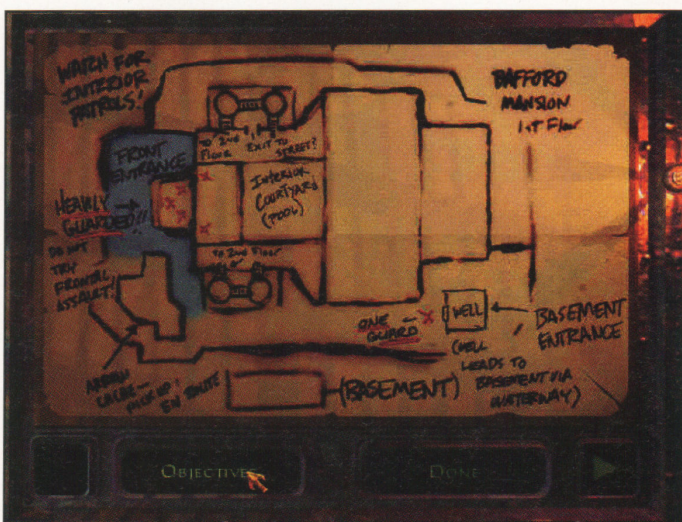 WATCH FOR
INTERIOR
PATROLS!
BAFFORD
MANSION
1ST FLOOR
FRONT
ENTRANCE
TO 2ND
FLOOR
EXIT TO
STREET?
INTERIOR
COURTYARD
(POOL)
HEAVILY
GUARDED!!
DO NOT
TRY
FRONTAL
ASSAULT!
TO 2ND FLOOR
ONE
GUARD
WELL
BASEMENT
ENTRANCE
(WELL
LEADS TO
BASEMENT VIA
WATERWAY)
CACHE—
PICK UP
EN ROUTE
(BASEMENT)
OBJECTIVES
DONE